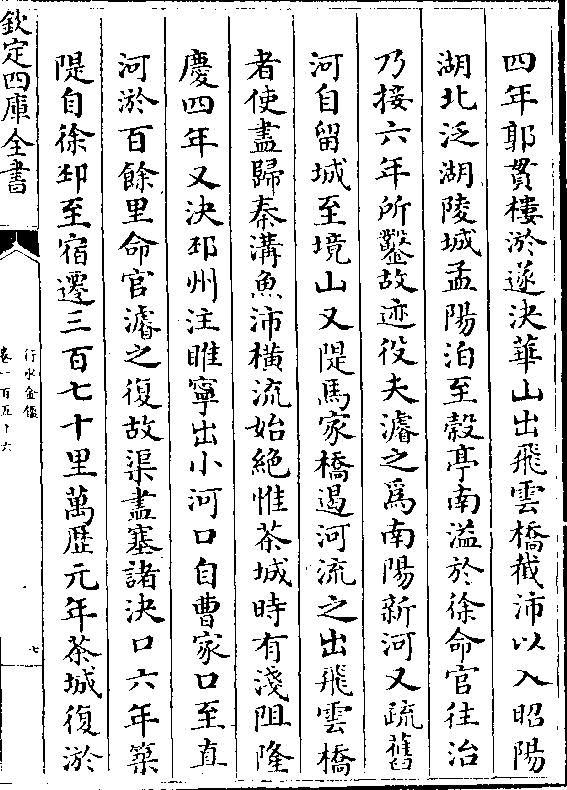 四年郭貫樓淤遂決華山出飛雲橋截沛以入昭陽
湖北泛湖陵城孟陽泊至榖亭南溢於徐命官往治
乃接六年所鑿故迹役夫濬之爲南陽新河又疏舊
河自留城至境山又隄馬家橋遏河流之出飛雲橋
者使盡歸秦溝魚沛横流始絶惟茶城時有淺阻隆
慶四年又決邳州注睢寧出小河口自曹家口至直
河淤百餘里命官濬之復故渠盡塞諸決口六年築
隄自徐邳至宿遷三百七十里萬歴元年茶城復淤
欽定四庫全書
行水金鑑
卷一百五十六
七